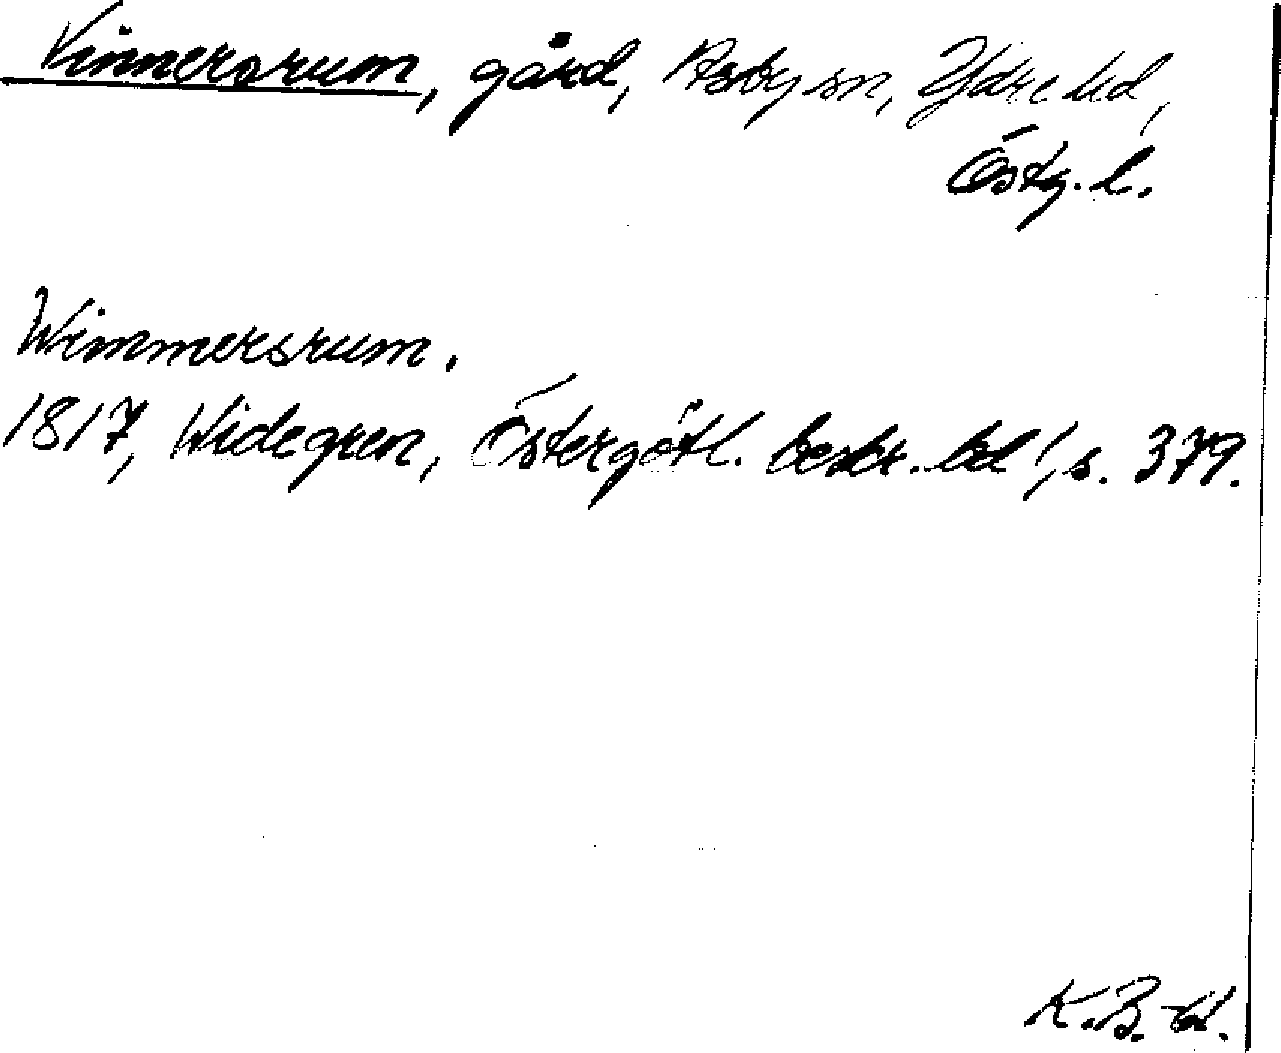 Vinnersrum, gård, Asby sn, Ydre hd,
Östg. l.
Wimmersrum.
1817, Widegren, Östergötl. beskr. bd 1, s. 379.
K.B.